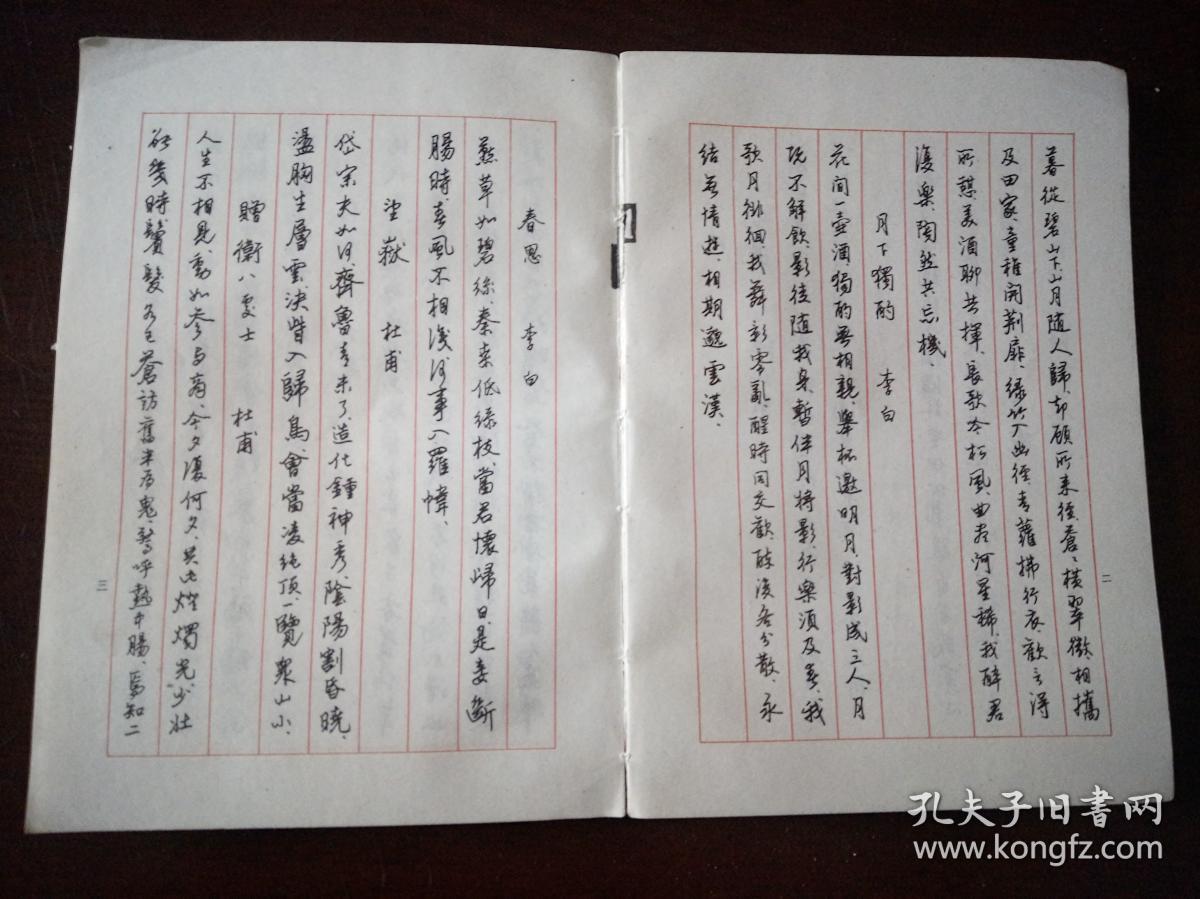 暮從碧山下、山月隨人歸、却顧所来徑、蒼〻橫翠微、相攜
及田家、童稚開荆扉、绿竹入幽徑、青蘿拂行衣、歡言得
所憩、美酒聊共揮、長歌吟松風、曲尽河星稀、我醉君
復樂、陶然共忘機、
月下獨酌 李白
花间一壶酒、獨酌無相親、舉杯邀明月、對影成三人、月
既不解飲、影徒随我身、暫伴月將影、行樂須及春、我
歌月徘徊、我舞影零亂、醒時同交歡、醉後各分散、永
结無情遊、相期邈雲漢、
二
春思 李白
燕草如碧絲、秦桑低绿枝、當君懷歸日、是妾斷
腸時、春風不相識、何事入羅幃、
望嶽 杜甫
岱宗夫如何、齊魯青未了、造化鍾神秀、陰陽割昏曉、
盪胸生層雲、決眥入歸鳥、會當凌绝頂、一覽衆山小、
贈衛八處士 杜甫
人生不相見、動如参与商、今夕復何夕、共此燈燭光、少壮
能幾時、鬓髮各已蒼、訪舊半为鬼、驚呼熱中腸、焉知二
三
孔夫子旧书网
www.kongfz.com